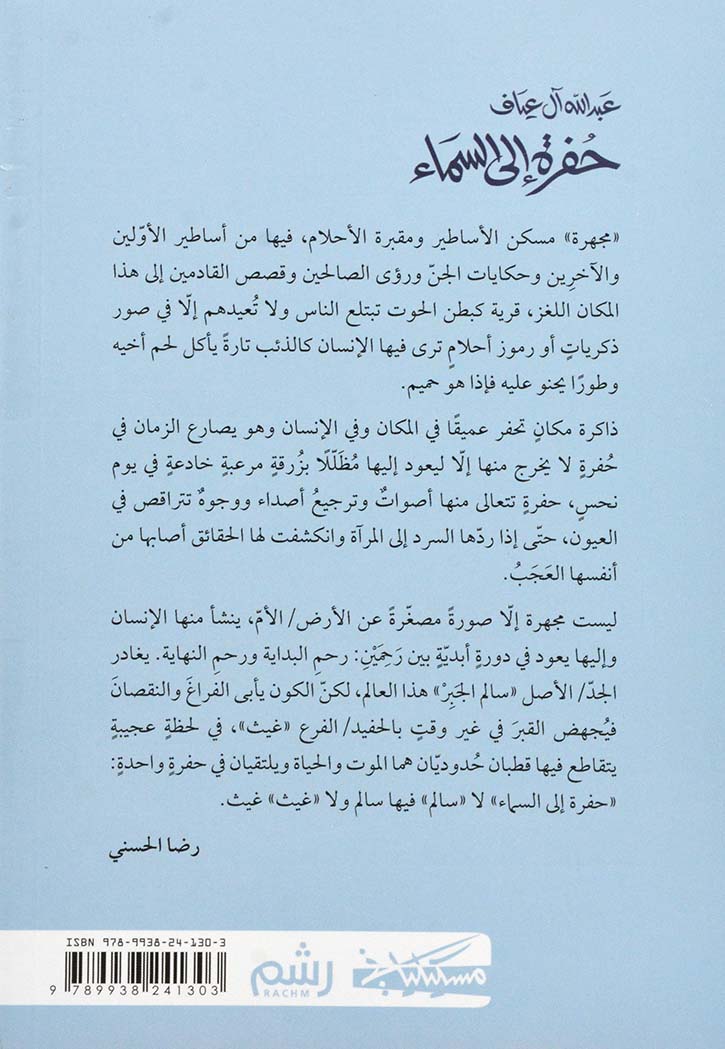 عبدالله آل عياف
حُفرة إلى السمَاء
«مجهرة» مسكن الأساطير ومقبرة الأحلام، فيها من أساطير الأوّلين
والآخرِين وحكايات الجنّ ورؤى الصالحين وقصص القادمين إلى هذا
المكان اللغز، قرية كبطن الحوت تبتلع الناس ولا تُعيدهم إلّا في صور
ذكرياتٍ أو رموز أحلامٍ ترى فيها الإنسان كالذئب تارةً يأكل لحم أخيه
وطورًا يحنو عليه فإذا هو حميم.
ذاكرة مكانٍ تحفر عميقًا في المكان وفي الإنسان وهو يصارع الزمان في
حُفرةٍ لا يخرج منها إلّا ليعود إليها مُظَلّلًا بزُرقةٍ مرعبةٍ خادعةٍ في يوم
نحسٍ، حفرةٍ تتعالى منها أصواتٌ وترجيعُ أصداء ووجوهٌ تتراقص في
العيون، حتّى إذا ردّها السرد إلى المرآة وانكشفت لها الحقائق أصابها من
أنفسها العَجَبُ.
ليست مجهرة إلّا صورةً مصغّرةً عن الأرض/ الأمّ، ينشأ منها الإنسان
وإليها يعود في دورةٍ أبديّةٍ بين رَحِمَيْنِ: رحمِ البداية ورحمِ النهاية. يغادر
الجدّ/ الأصل «سالم الجَبِرْ» هذا العالم، لكنّ الكون يأبى الفراغَ والنقصانَ
فيُجهض القبرَ في غير وقتٍ بالحفيد/ الفرع «غيث»، في لحظةٍ عجيبةٍ
يتقاطع فيها قطبان حُدوديّان هما الموت والحياة ويلتقيان في حفرةٍ واحدةٍ:
«حفرة إلى السماء» لا «سالم» فيها سالم ولا «غيث» غيث.
رضا الحسني
ISBN 978-9938-24-130-3
9 789938 241303
رشم
RACHM
مسكيلياني